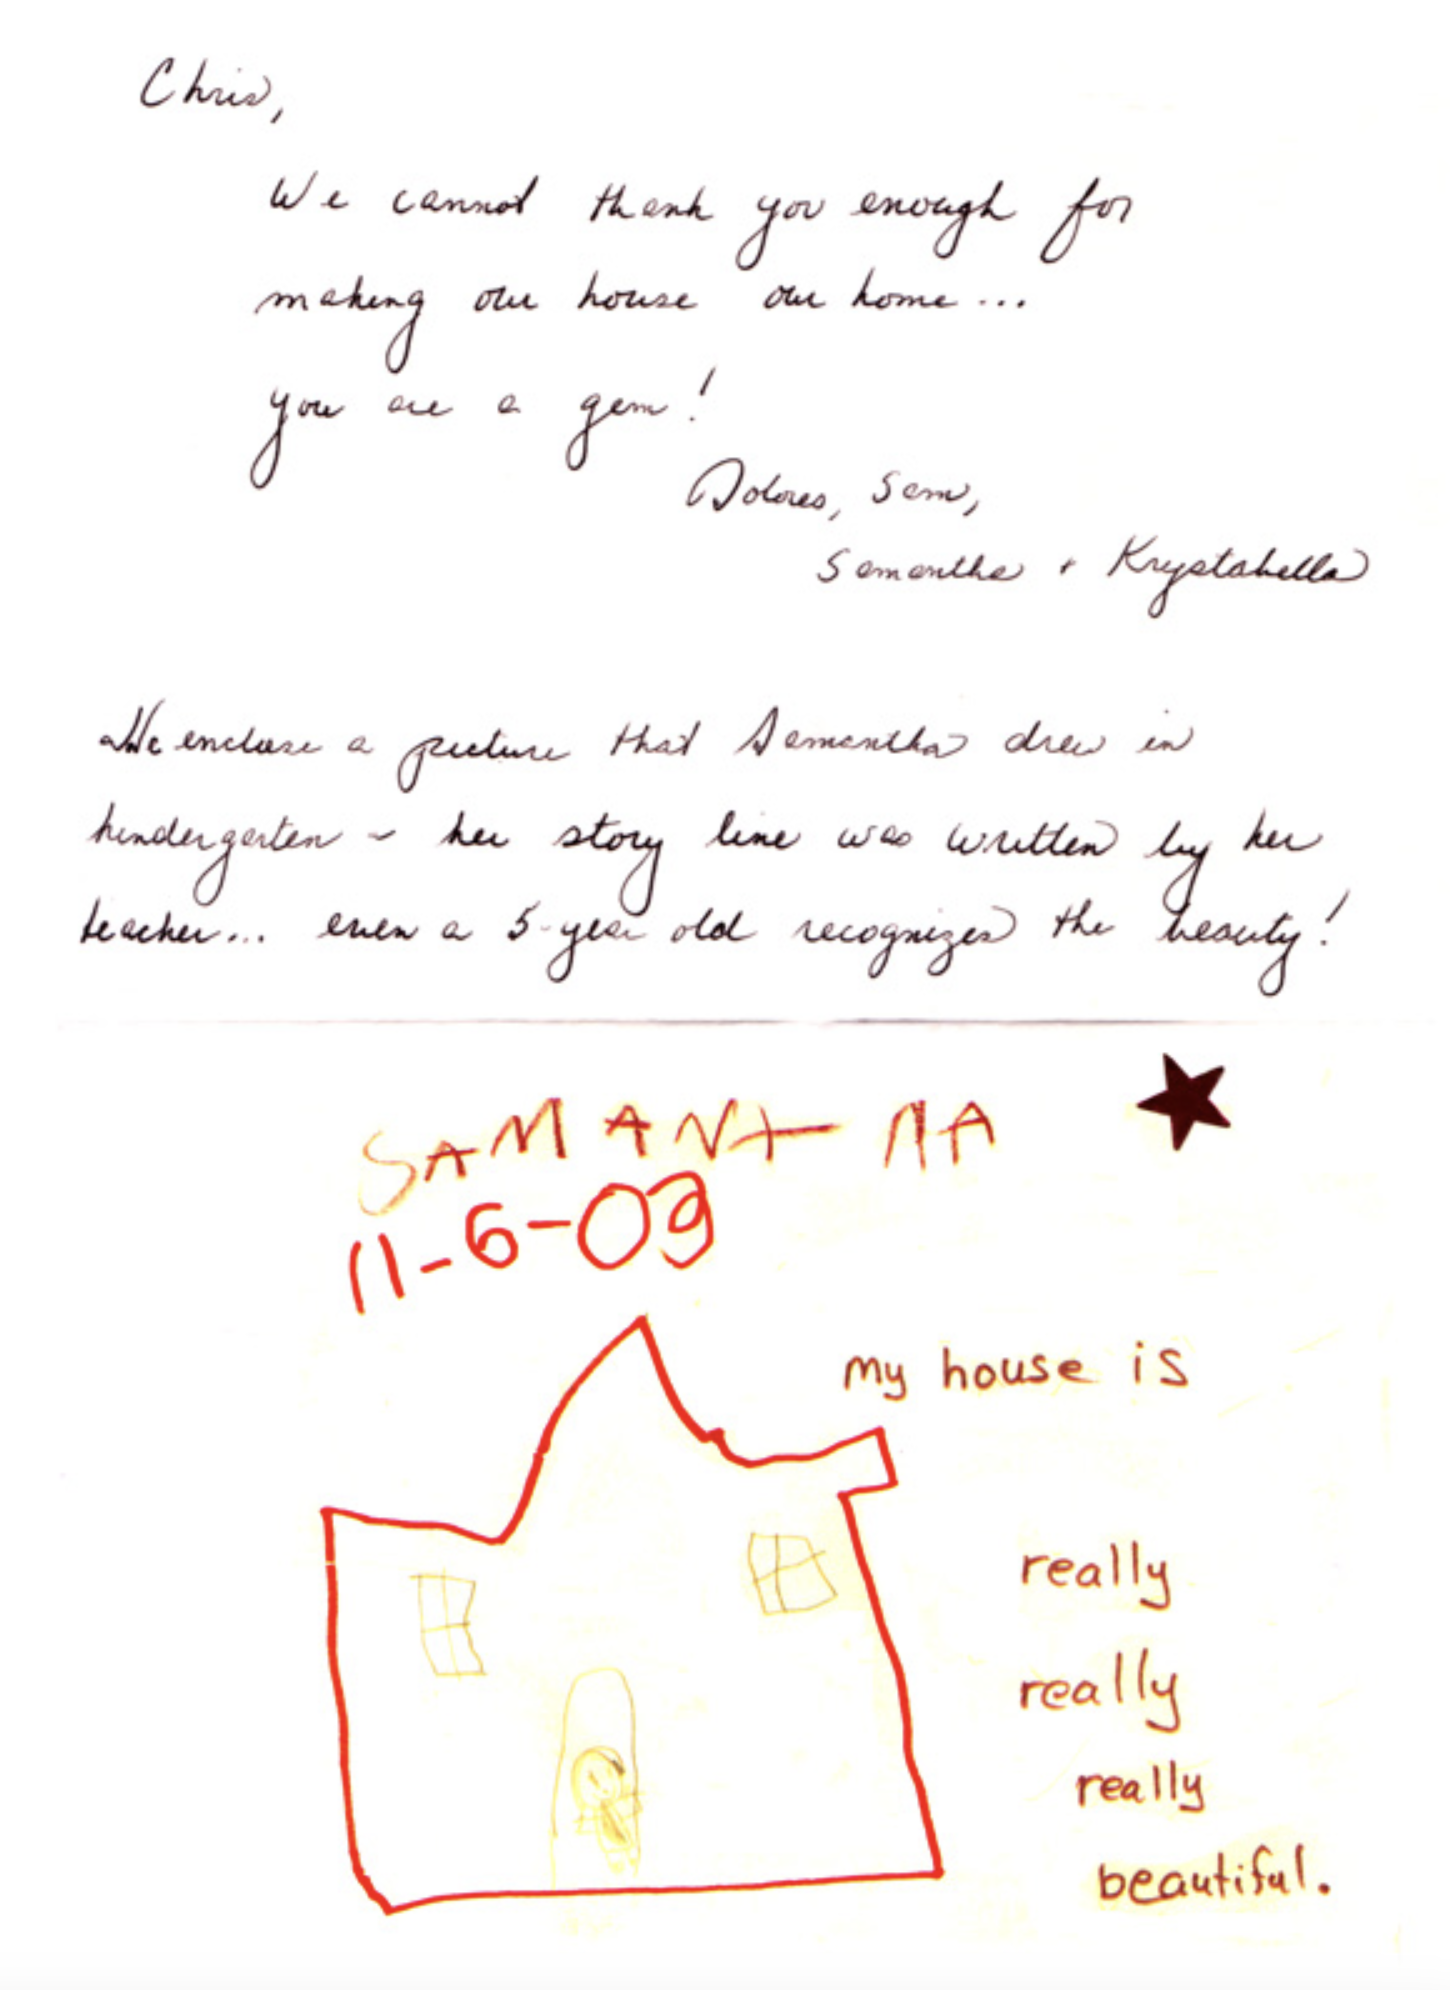 Chris,
We cannot thank you enough for
making our house our home...
you are a gem!
Dolores, Sam,
Samantha + Krystabella
We enclose a picture that Samantha drew in
kindergarten - her story line was written by her
teacher... even a 5-year old recognizes the beauty!
SAMANTHA
11-6-03
my house is
really
really
really
beautiful.